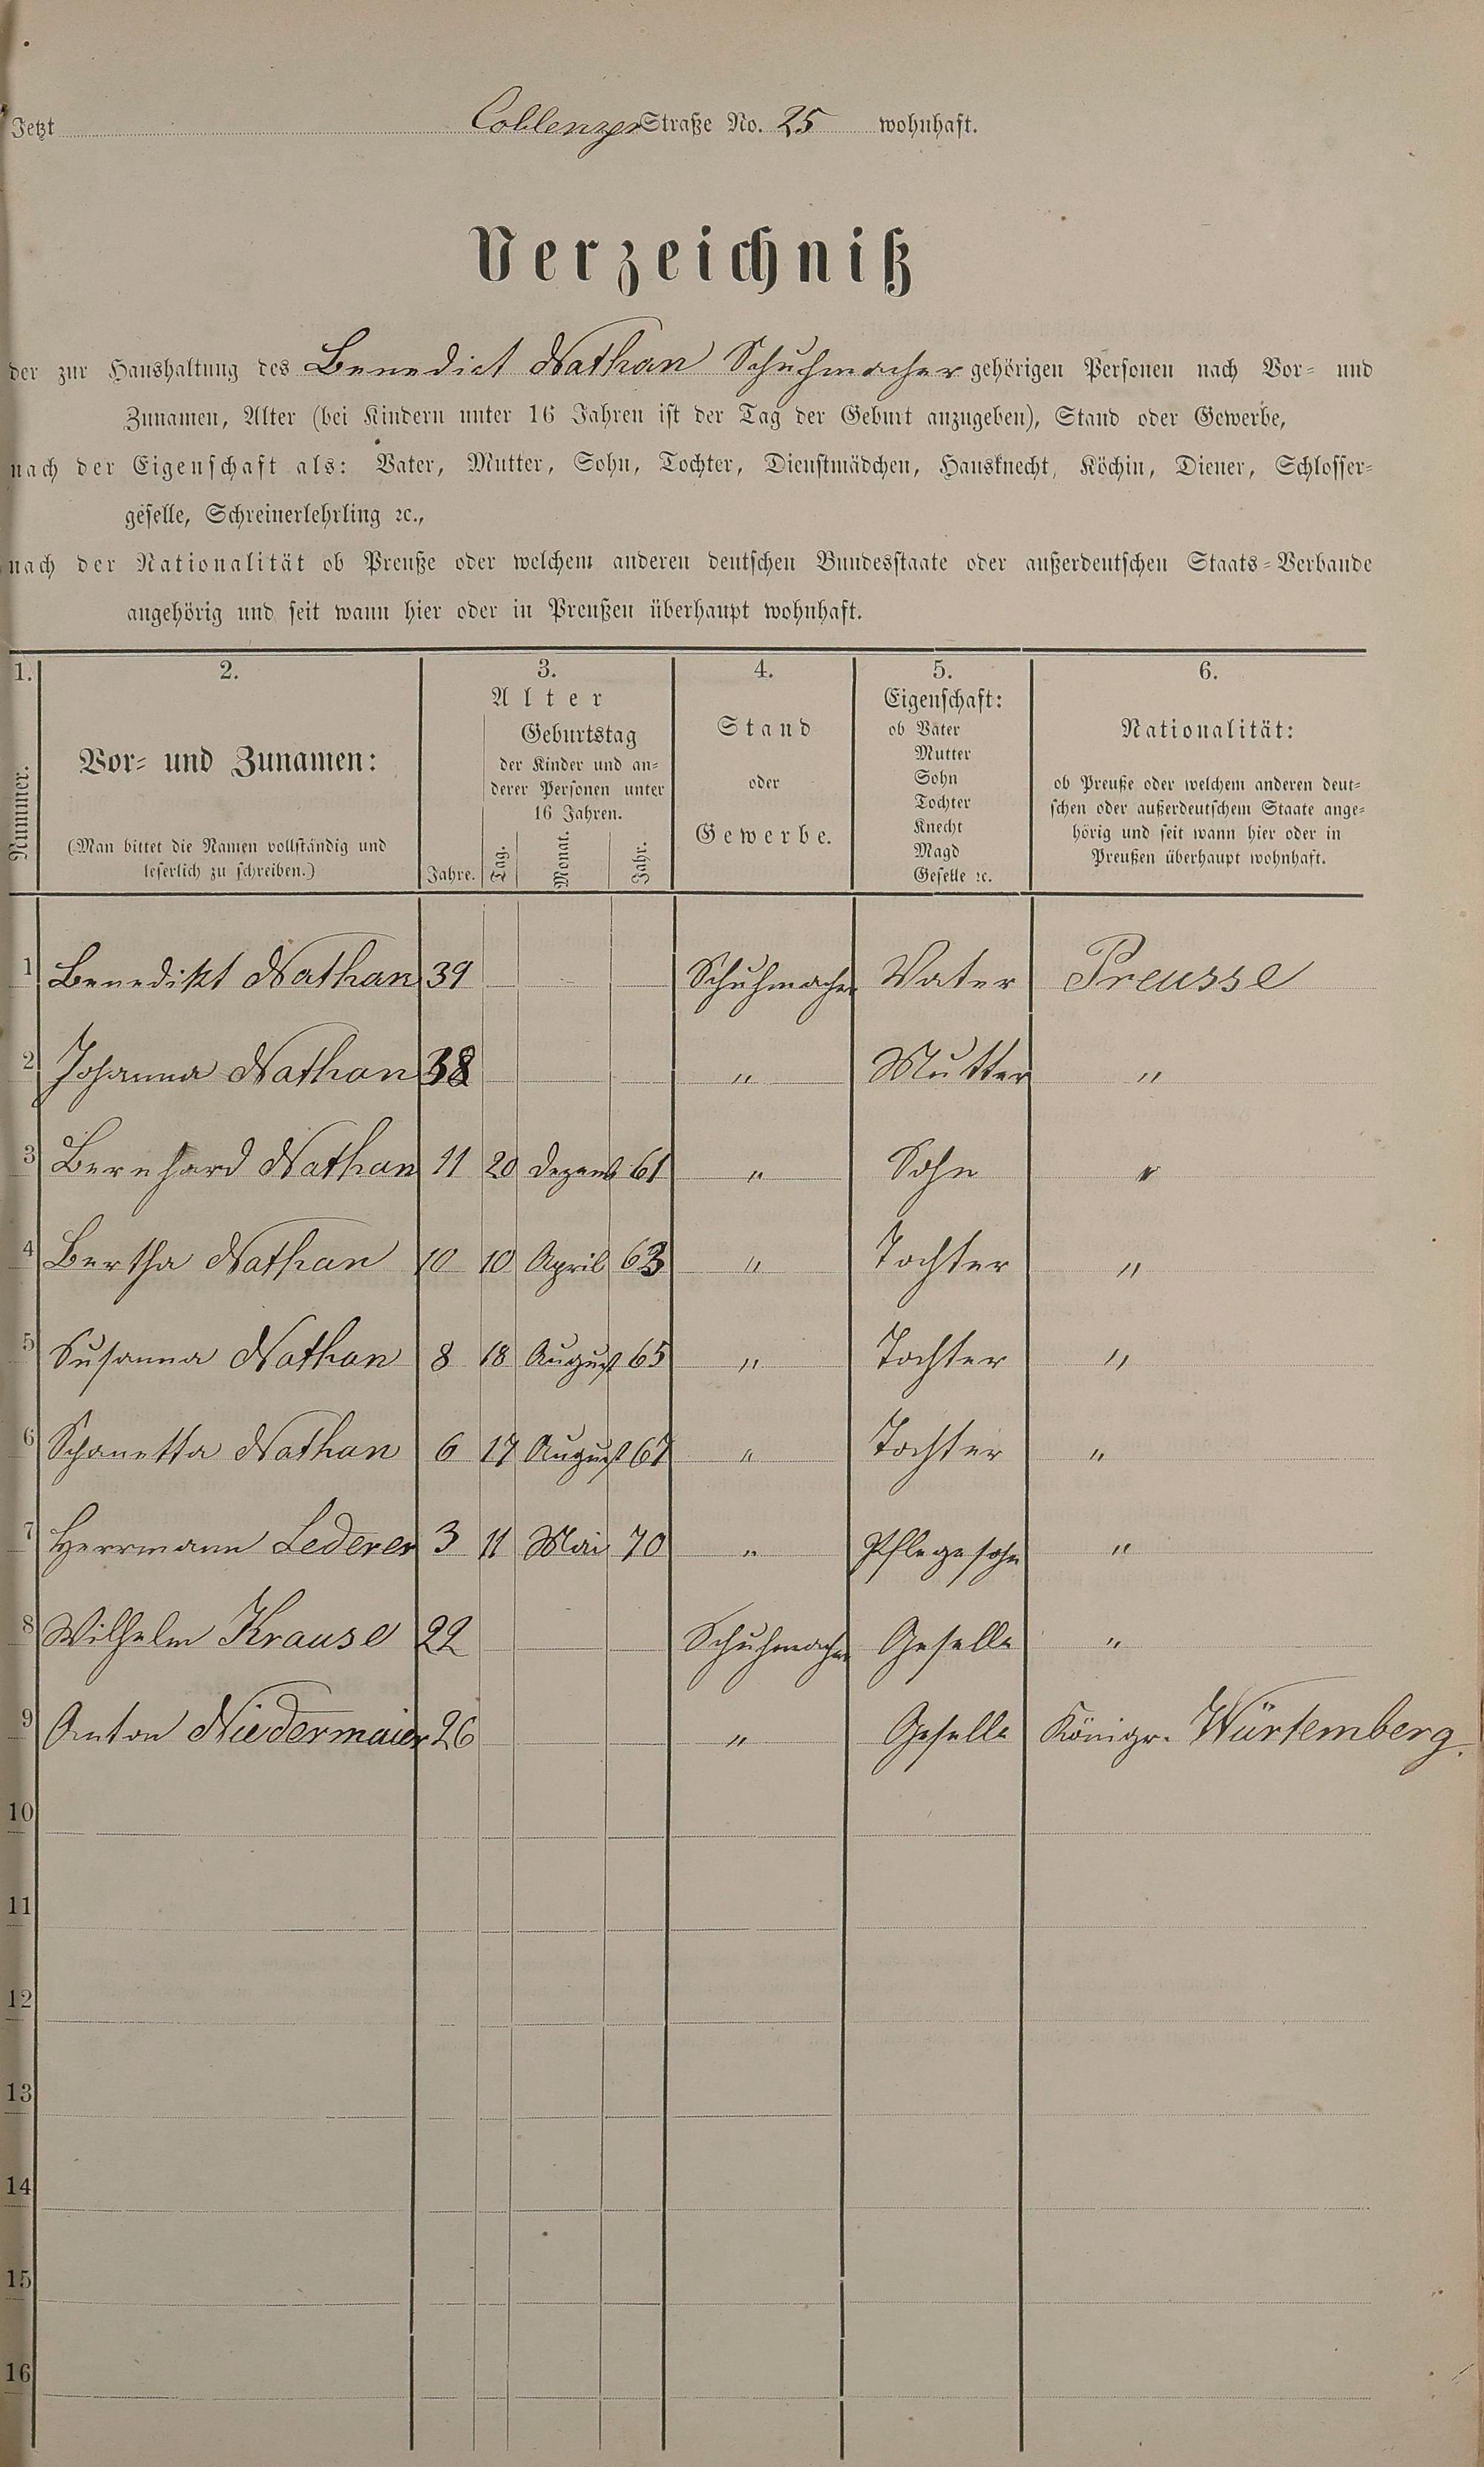 Jetzt Coblenzer Straße No. 25 wohnhaft.
Verzeichniß
der zur Haushaltung des Benedict Nathan Schuhmacher gehörigen Personen nach Vor- und
Zunamen, Alter (bei Kindern unter 16 Jahren ist der Tag der Geburt anzugeben), Stand oder Gewerbe,
nach der Eigenschaft als: Vater, Mutter, Sohn, Tochter, Dienstmädchen, Hausknecht, Köchin, Diener, Schlosser-
geselle, Schreinerlehrling ꝛc.,
nach der Nationalität ob Preuße oder welchem anderen deutschen Bundesstaate oder außerdeutschen Staats-Verbande
angehörig und seit wann hier oder in Preußen überhaupt wohnhaft.
1.
Nummer.
2.
Vor- und Zunamen:
(Man bittet die Namen vollständig und
leserlich zu schreiben.)
3.
Alter
Jahre.
Geburtstag
der Kinder und an-
derer Personen unter
16 Jahren.
Tag.
Monat.
Jahr.
4.
Stand
oder
Gewerbe.
5.
Eigenschaft:
ob Vater
Mutter
Sohn
Tochter
Knecht
Magd
Geselle ꝛc.
6.
Nationalität:
ob Preuße oder welchem anderen deut-
schen oder außerdeutschem Staate ange-
hörig und seit wann hier oder in
Preußen überhaupt wohnhaft.
1 Benedikt Nathan 39 Schuhmacher Vater Preusse
2 Johanna Nathan 38 " Mutter "
3 Bernhard Nathan 11 20 Dezemb 61 " Sohn "
4 Bertha Nathan 10 10 April 63 " Tochter "
5 Susanna Nathan 8 18 August 65 " Tochter "
6 Schanetta Nathan 6 17 August 67 " Tochter "
7 Herrmann Lederer 3 11 Mai 70 " Pflegesohn "
8 Wilhelm Krause 22 Schuhmacher Geselle "
9 Anton Niedermaier 26 " Geselle Königr. Würtemberg.
10
11
12
13
14
15
16